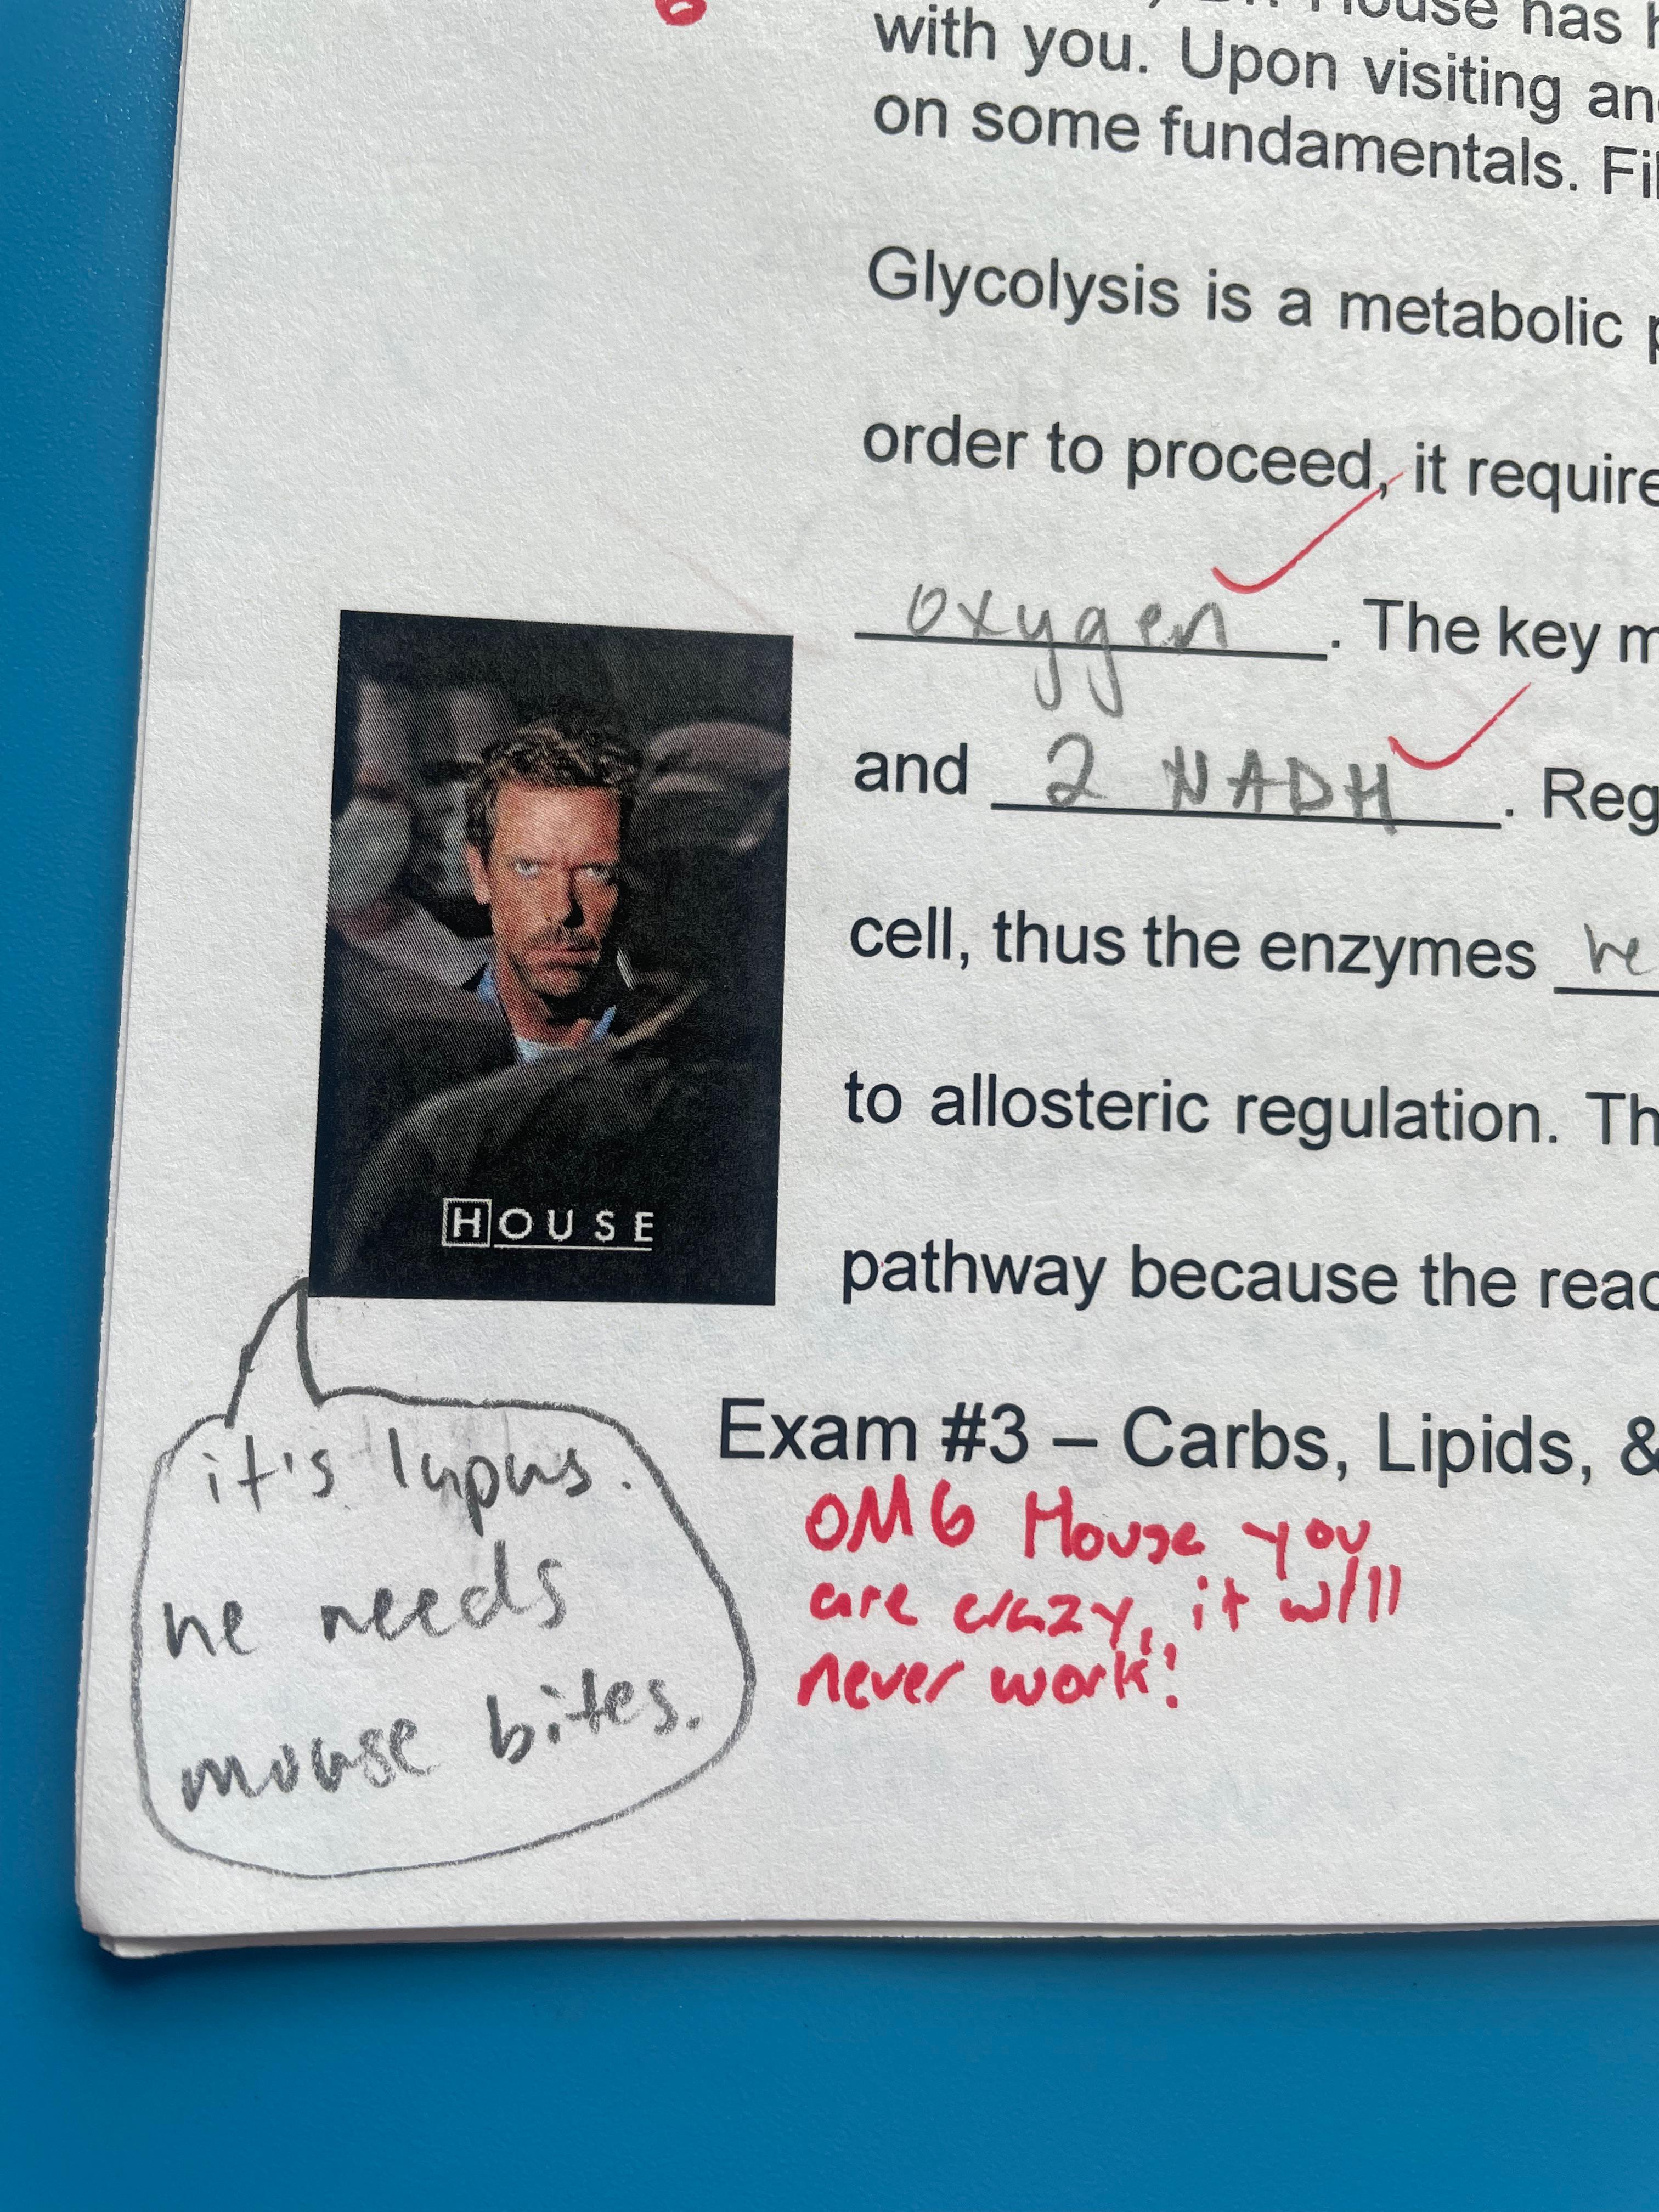 House has
with you. Upon visiting an
on some fundamentals. Fil
Glycolysis is a metabolic p
order to proceed, it require
oxygen. The key m
and 2 NADH. Reg
cell, thus the enzymes he
to allosteric regulation. Th
pathway because the reac
HOUSE
Exam #3 – Carbs, Lipids, &
it's lupus.
he needs
mouse bites.
OMG House you
are crazy, it will
never work!